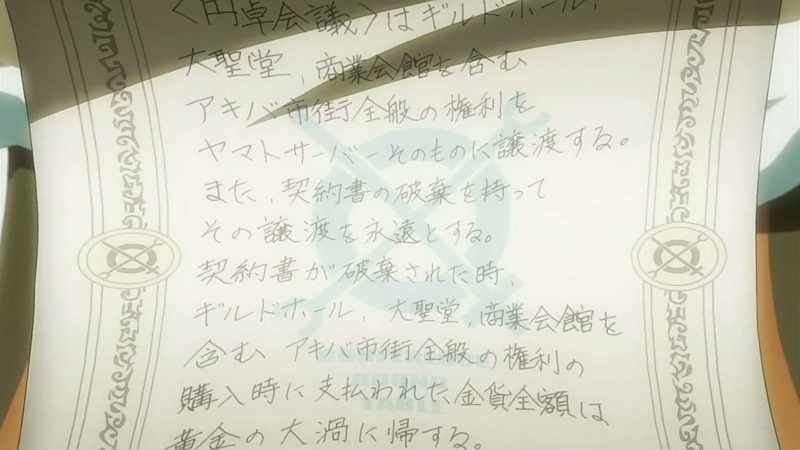 〈円卓会議〉はギルドホール、
大聖堂、商業会館を含む
アキバ市街全般の権利を
ヤマトサーバーそのものに譲渡する。
また、契約書の破棄を持って
その譲渡を永遠とする。
契約書が破棄された時、
ギルドホール、大聖堂、商業会館を
含む アキバ市街全般の権利の
購入時に支払われた金貨全額は
黄金の大渦に帰する。
ROUND
TABLE